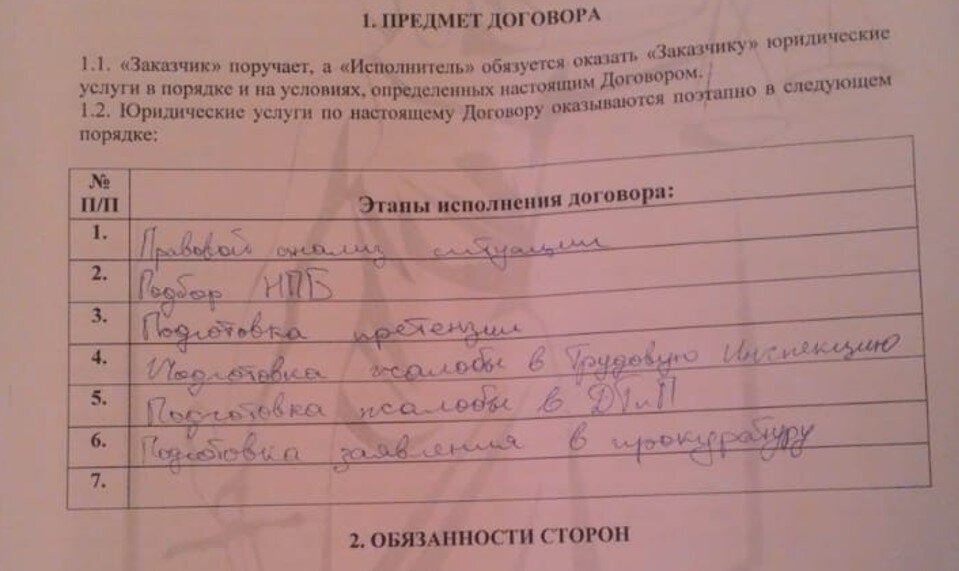 1. ПРЕДМЕТ ДОГОВОРА
1.1. «Заказчик» поручает, а «Исполнитель» обязуется оказать «Заказчику» юридические
услуги в порядке и на условиях, определенных настоящим Договором.
1.2. Юридические услуги по настоящему Договору оказываются поэтапно в следующем
порядке:
№ П/П Этапы исполнения договора:
1. Правовой анализ ситуации
2. Подбор НПБ
3. Подготовка претензии
4. Подготовка жалобы в Трудовую Инспекцию
5. Подготовка жалобы в ДТиП
6. Подготовка заявления в прокуратуру
7.
2. ОБЯЗАННОСТИ СТОРОН